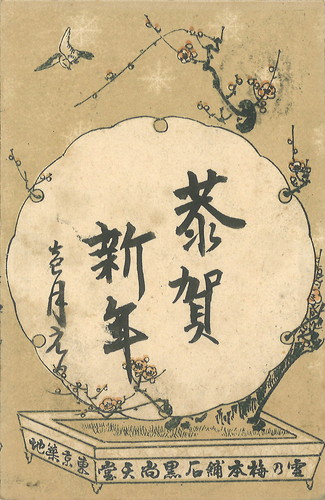 恭賀
新年
壱月元旦
雪乃梅本舗石黒尚天堂
東京築地